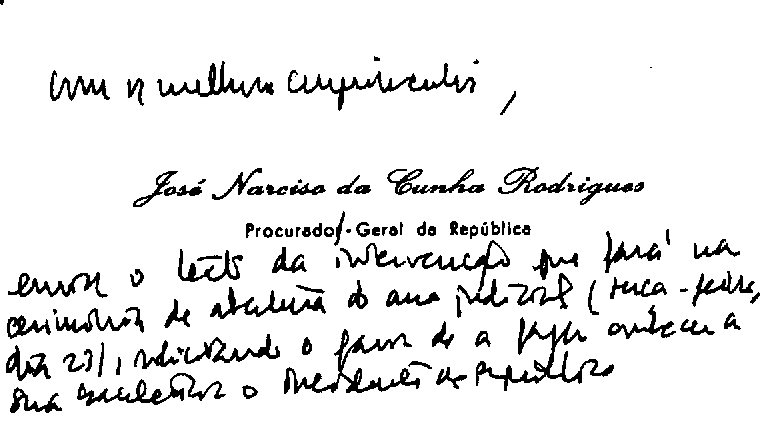 com os melhores cumprimentos,
José Narciso da Cunha Rodrigues
Procurador-Geral da República
envia o texto da intervenção que fará na
cerimónia de abertura do ano judicial (terça-feira,
dia 23), solicitando o favor de a fazer a
Sua Excelência o Presidente da República